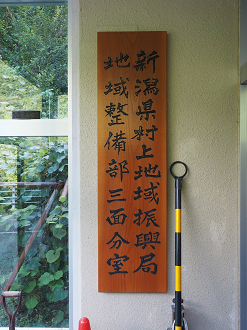 新潟県村上地域振興局
地域整備部三面分室